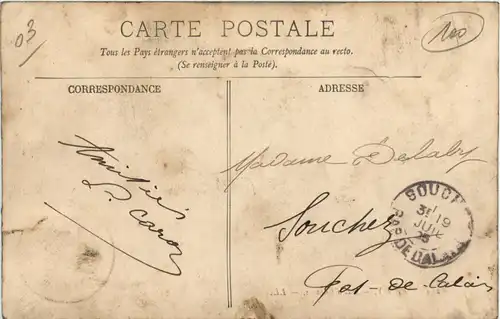 03
100
CARTE POSTALE
Tous les Pays étrangers n'acceptent pas la Correspondance au recto.
(Se renseigner à la Poste).
CORRESPONDANCE
ADRESSE
Amitiés
P. Caron
Madame Delaby
Souchez
Pas-de-Calais
SOUCH
3E 19
JUIL
PAS DE CALAIS